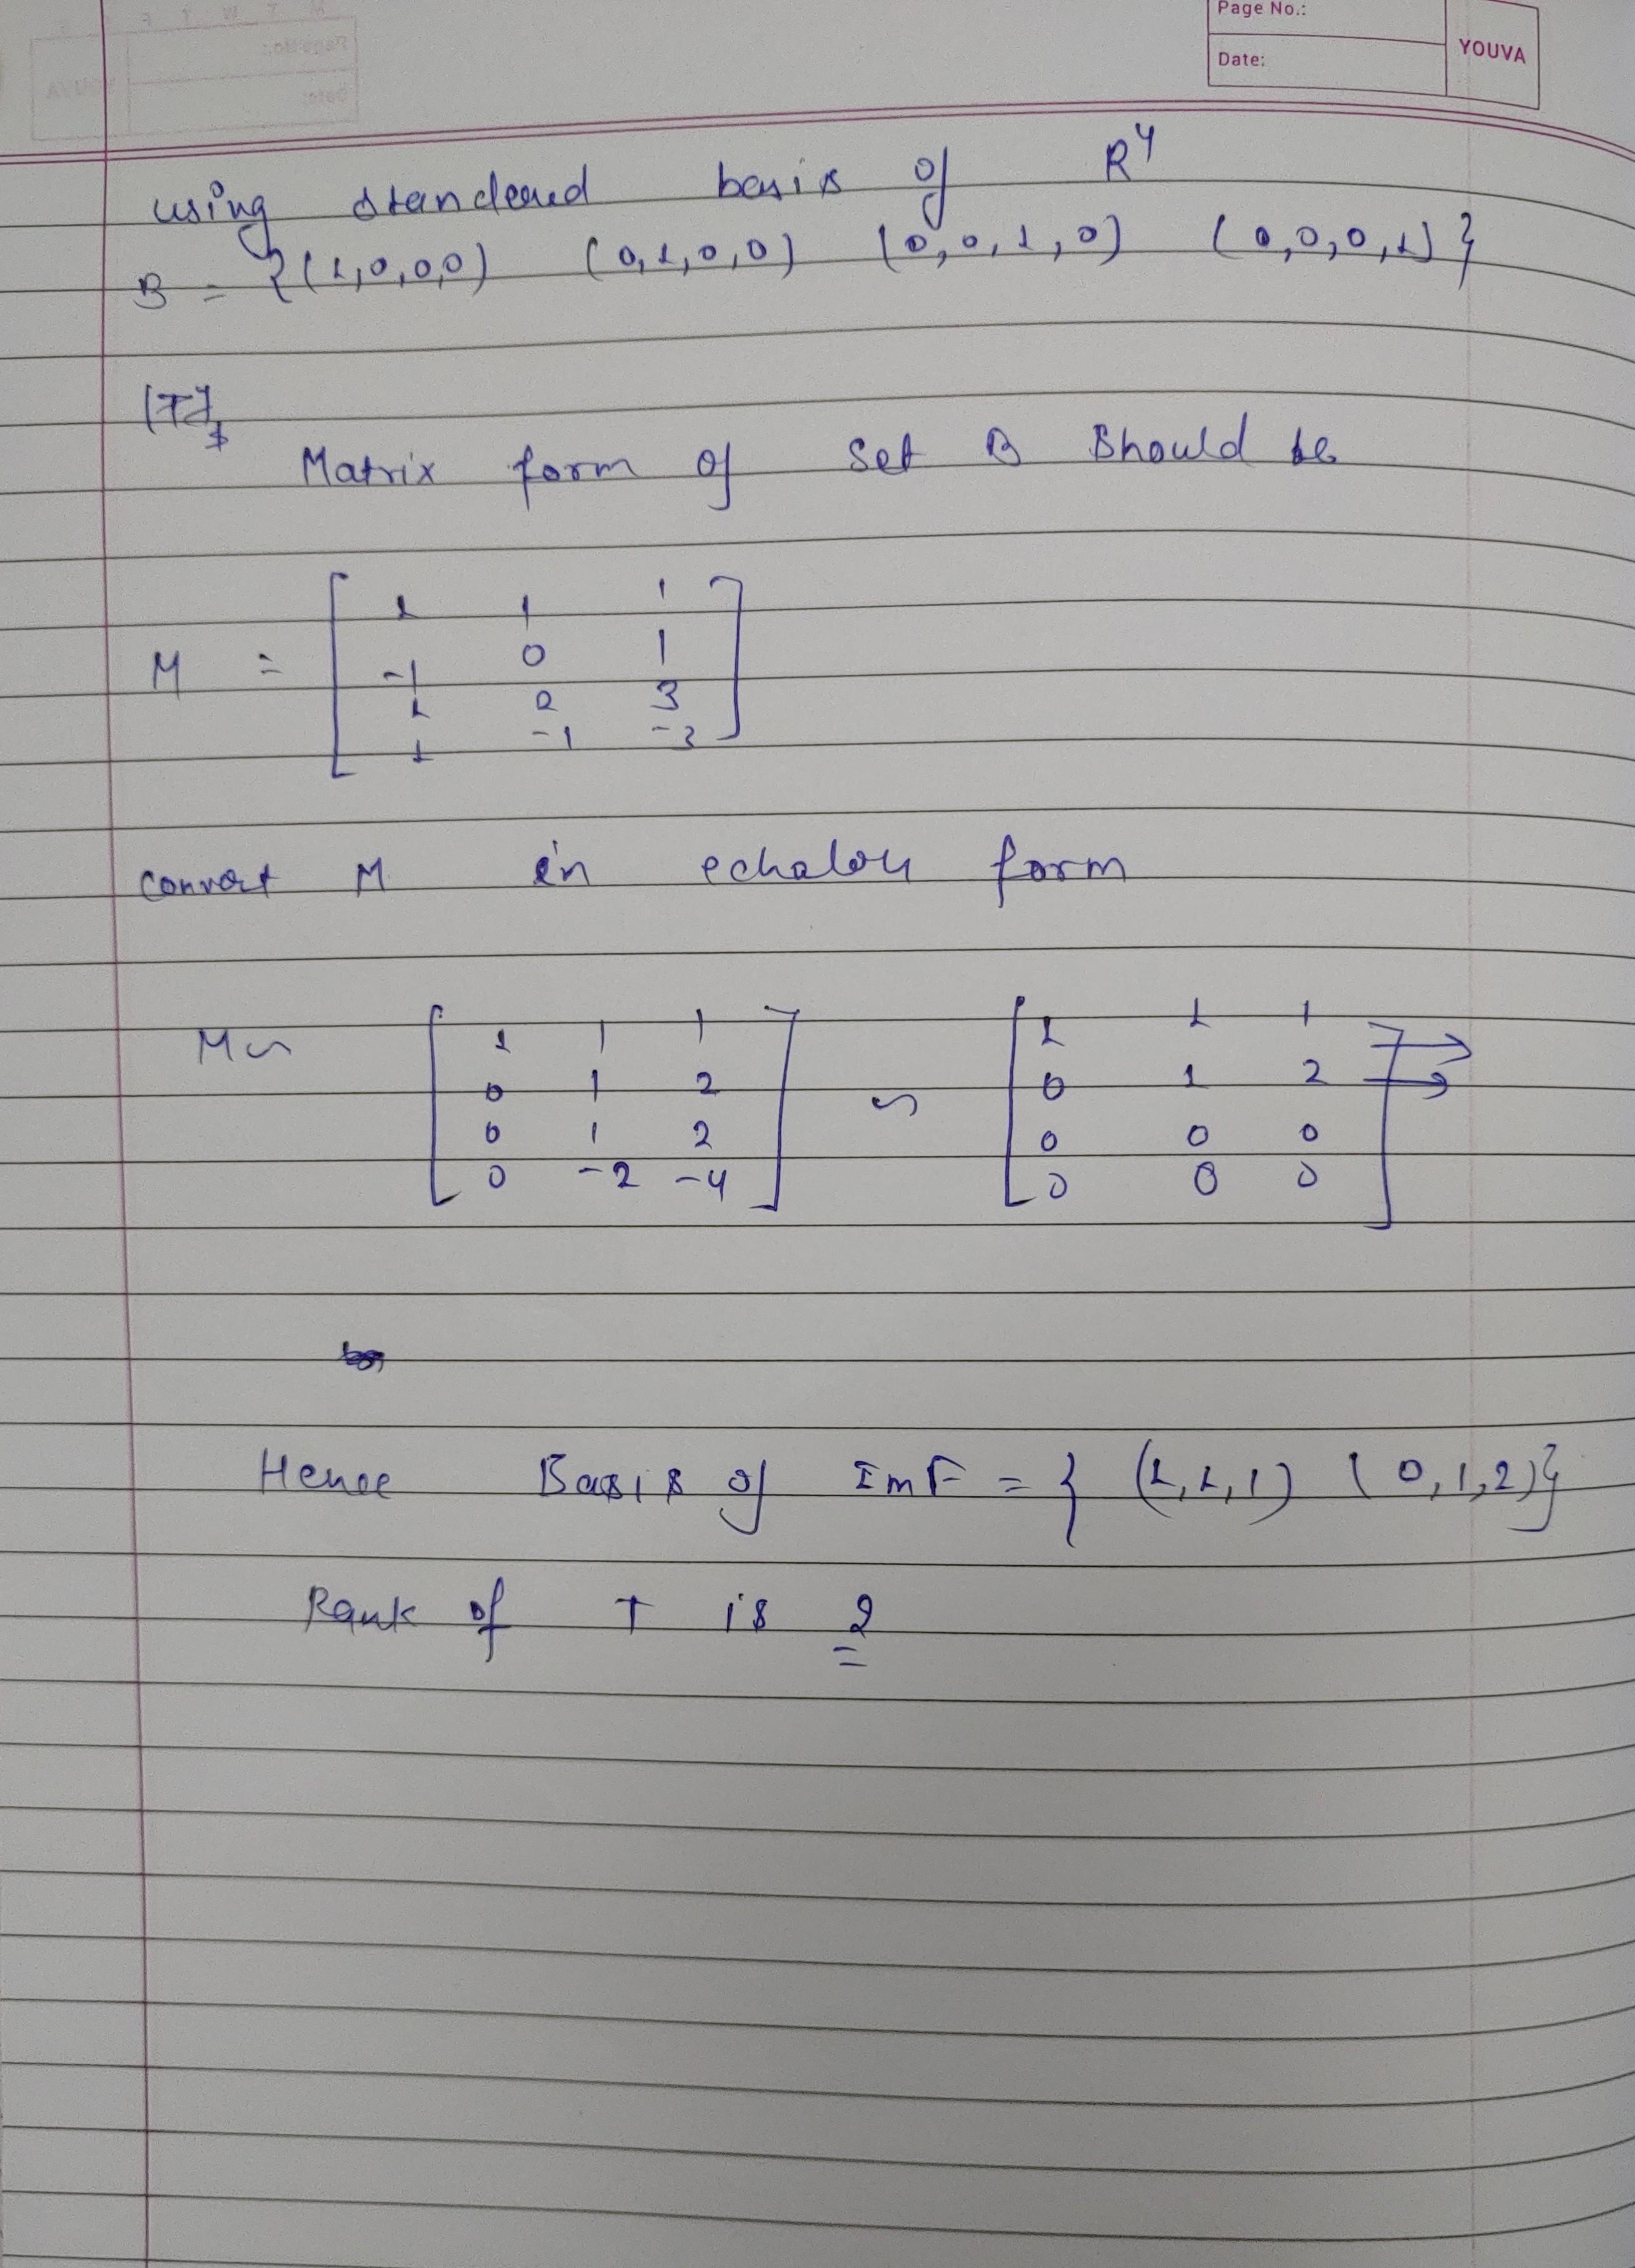 Page No.:
Date:
YOUVA
using standered basis of R⁴
B = {(1,0,0,0) (0,1,0,0) (0,0,1,0) (0,0,0,1)}
Matrix form of set B should be
M = [ 1 1 1
-1 0 1
1 2 3
1 -1 -3 ]
convert M in echalon form
M ~ [ 1 1 1 ~ [ 1 1 1
0 1 2 0 1 2
0 1 2 0 0 0
0 -2 -4 ] 0 0 0 ]
Hence Basis of ImF = { (1,1,1) (0,1,2)}
Rank of T is 2